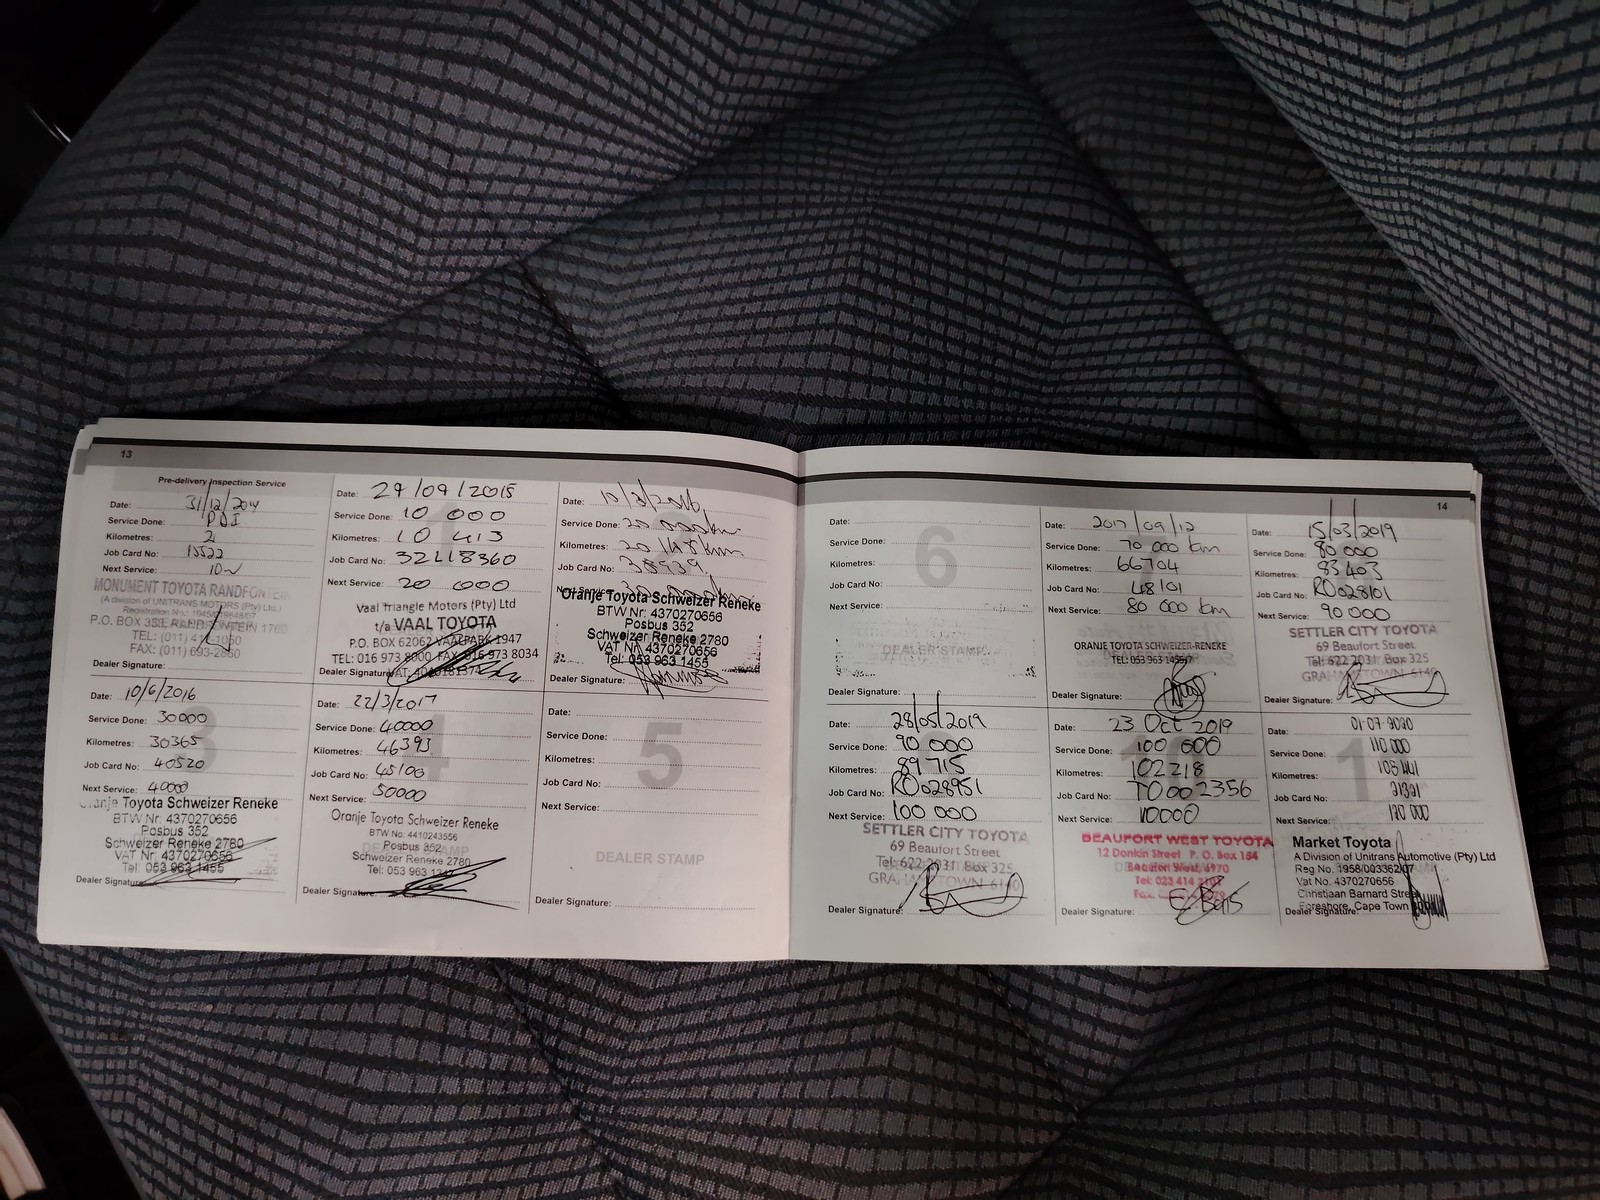 13
Pre-delivery Inspection Service
Date: 31/12/2014
Service Done: PDI
Kilometres: 2
Job Card No: 15522
Next Service: 10
MONUMENT TOYOTA RANDFONTEIN
(A division of UNITRANS MOTORS (Pty) Ltd.)
TEL: (011)
FAX: (011) 693-2860
Dealer Signature:
Date: 29/09/2015
Service Done: 10 000
Kilometres: 10 413
Job Card No: 32118360
Next Service: 20 000
Vaal Triangle Motors (Pty) Ltd
t/a VAAL TOYOTA
P.O. BOX 62062 VAALPARK 1947
TEL: 016 973 8000 FAX: 016 973 8034
Dealer Signature:
Date: 10/3/2016
Service Done: 20 000km
Kilometres:
Job Card No: 38939
Next Service: 30 000km
Oranje Toyota Schweizer Reneke
BTW Nr: 4370270656
Posbus 352
Schweizer Reneke 2780
VAT Nr: 4370270656
Tel: 053 963 1455
Dealer Signature:
3
Date: 10/6/2016
Service Done: 30000
Kilometres: 30365
Job Card No: 40520
Next Service: 40000
Oranje Toyota Schweizer Reneke
BTW Nr: 4370270656
Posbus 352
Schweizer Reneke 2780
VAT Nr: 4370270656
Tel: 053 963 1455
Dealer Signature:
4
Date: 22/3/2017
Service Done: 40000
Kilometres: 46393
Job Card No: 45100
Next Service: 50000
Oranje Toyota Schweizer Reneke
BTW No: 4410243556
Posbus 352
Schweizer Reneke 2780
Tel: 053 963
Dealer Signature:
5
Date:
Service Done:
Kilometres:
Job Card No:
Next Service:
DEALER STAMP
Dealer Signature:
14
6
Date:
Service Done:
Kilometres:
Job Card No:
Next Service:
DEALER STAMP
Dealer Signature:
Date: 2017/09/12
Service Done: 70 000 km
Kilometres: 66704
Job Card No: 48101
Next Service: 80 000 km
ORANJE TOYOTA SCHWEIZER-RENEKE
TEL: 053 963
Dealer Signature:
Date: 15/03/2019
Service Done: 80 000
Kilometres: 83 403
Job Card No: RO028101
Next Service: 90 000
SETTLER CITY TOYOTA
69 Beaufort Street
Tel: 622 2031 Box 325
GRAHAMSTOWN 6140
Dealer Signature:
Date: 28/05/2019
Service Done: 90 000
Kilometres: 89 715
Job Card No: RO028951
Next Service: 100 000
SETTLER CITY TOYOTA
69 Beaufort Street
Tel: 622 2031 Box 325
GRAHAMSTOWN 6140
Dealer Signature:
Date: 23 Oct 2019
Service Done: 100 000
Kilometres: 102218
Job Card No: TO002356
Next Service: 110000
BEAUFORT WEST TOYOTA
12 Donkin Street P. O. Box 154
Beaufort West, 6970
Tel: 023 414
Fax:
Dealer Signature:
Date: 01-07-2020
Service Done: 110 000
Kilometres:
Job Card No:
Next Service: 120 000
Market Toyota
A Division of Unitrans Automotive (Pty) Ltd
Reg No. 1958/003362/07
Vat No. 4370270656
Christiaan Barnard Street
Foreshore, Cape Town
Dealer Signature: